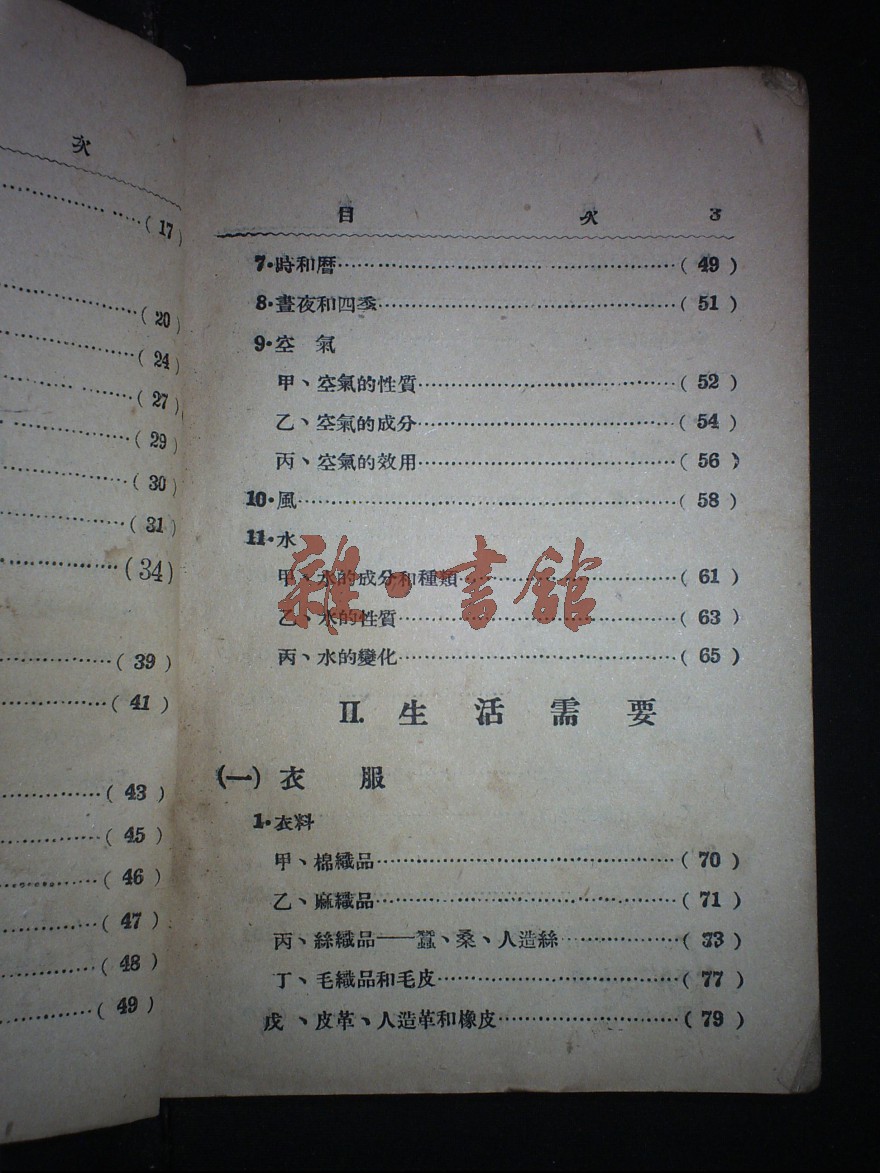 次
(17)
(20)
(24)
(27)
(29)
(30)
(31)
(34)
(39)
(41)
(43)
(45)
(46)
(47)
(48)
(49)
目 次 3
7·時和曆……(49)
8·晝夜和四季……(51)
9·空 氣
甲、空氣的性質……(52)
乙、空氣的成分……(54)
丙、空氣的效用……(56)
10·風……(58)
11·水
甲、水的成分和種類……(61)
乙、水的性質……(63)
丙、水的變化……(65)
雜·書館
II. 生活需要
(一) 衣 服
1·衣料
甲、棉織品……(70)
乙、麻織品……(71)
丙、絲織品——蠶、桑、人造絲……(73)
丁、毛織品和毛皮……(77)
戊、皮革、人造革和橡皮……(79)